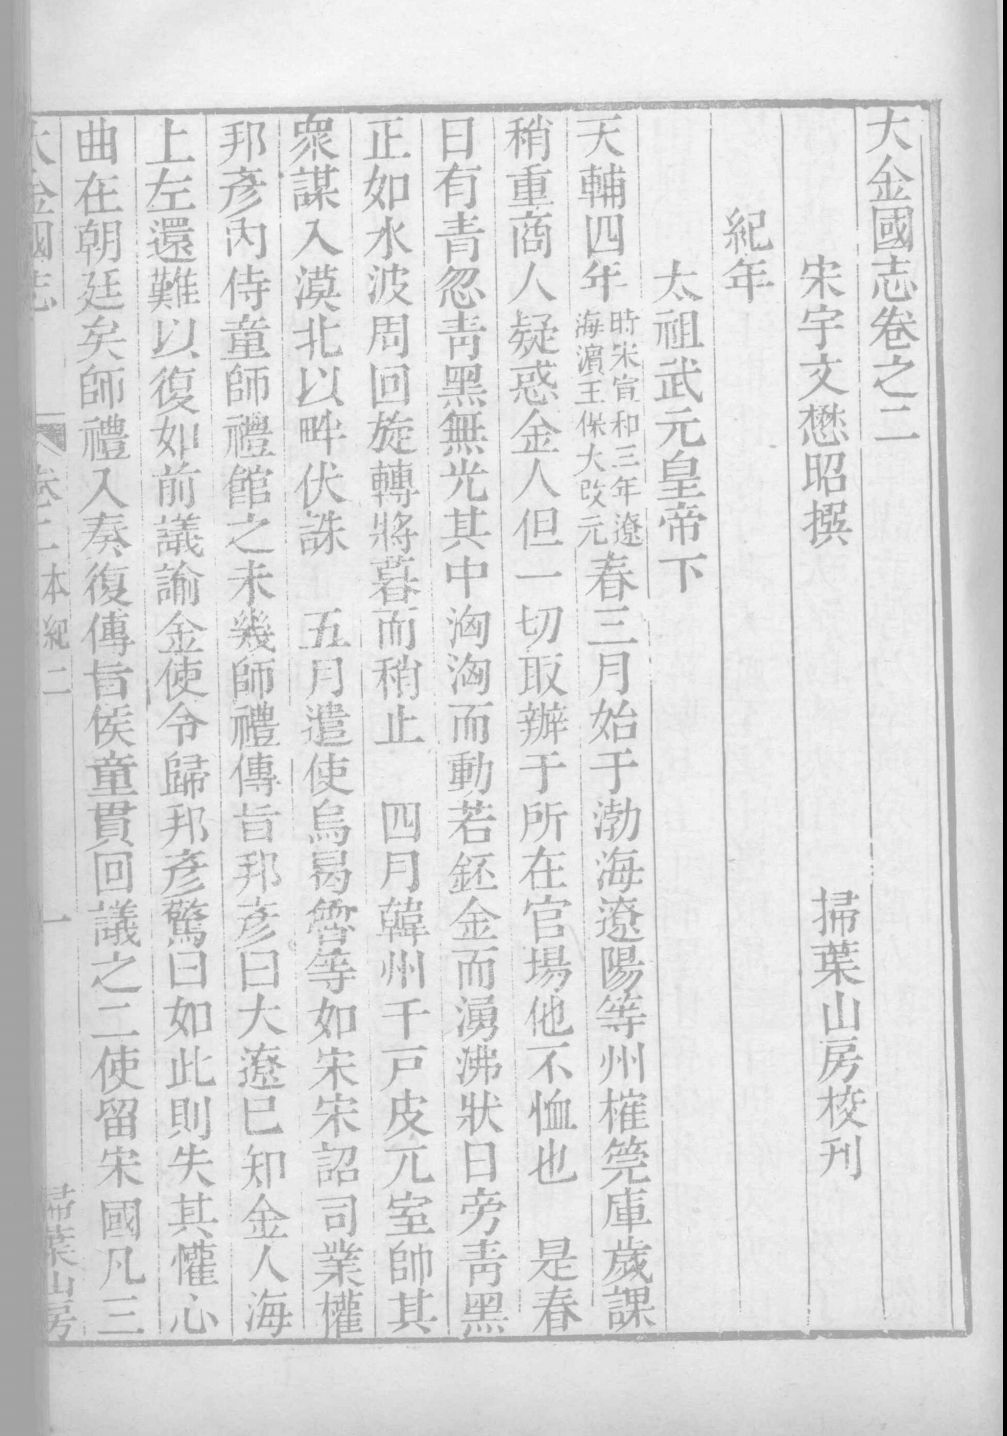 大金國志卷之二
宋宇文懋昭撰　掃葉山房校刊
紀年
太祖武元皇帝下
天輔四年時宋宣和三年遼海濵王保大改元春三月始于渤海遼陽等州榷筦庫歲課
稍重商人疑惑金人但一切取辦于所在官場他不恤也　是春
日有青忽青黑無光其中洶洶而動若鉟金而湧沸狀日旁青黑
正如水波周回旋轉將暮而稍止　四月韓州千戸皮元室帥其
衆謀入漠北以畔伏誅　五月遣使烏曷魯等如宋宋詔司業權
邦彥內侍童師禮館之未幾師禮傳旨邦彥曰大遼已知金人海
上左還難以復如前議諭金使令歸邦彥驚曰如此則失其懽心
曲在朝廷矣師禮入奏復傳旨候童貫回議之二使留宋國凡三
大金國志　卷二本紀二　一　掃葉山房